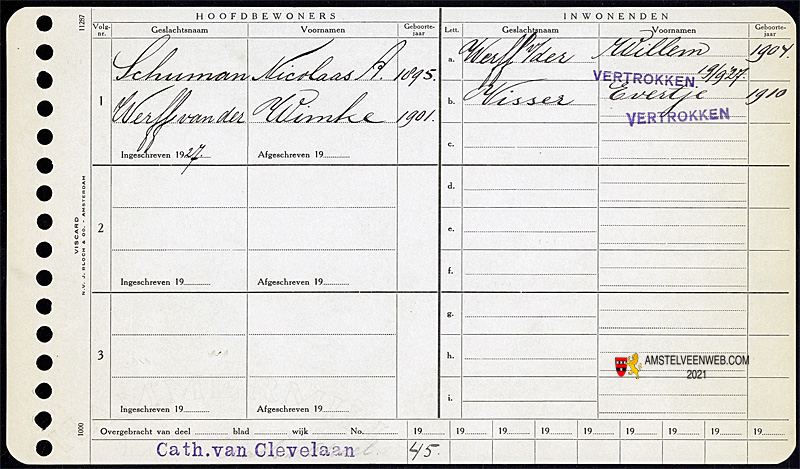 HOOFDBEWONERS
INWONENDEN
11287
Volg-nr.
Geslachtsnaam
Voornamen
Geboorte-jaar
Lett.
Geslachtsnaam
Voornamen
Geboorte-jaar
1
Schuman Nicolaas A. 1895.
Werff van der Wimke 1901.
Ingeschreven 1927.
Afgeschreven 19
a. Werff v/der Willem 1904.
VERTROKKEN 19/9 27.
b. Visser Evertje 1910
VERTROKKEN
c.
2
Ingeschreven 19
Afgeschreven 19
d.
e.
f.
3
Ingeschreven 19
Afgeschreven 19
g.
h.
i.
AMSTELVEENWEB.COM
2021
VISCARD
N.V. J. BLOCH & CO. - AMSTERDAM
1000
Overgebracht van deel blad wijk No. 19 19 19 19 19 19 19 19 19
Cath.van Clevelaan 45.